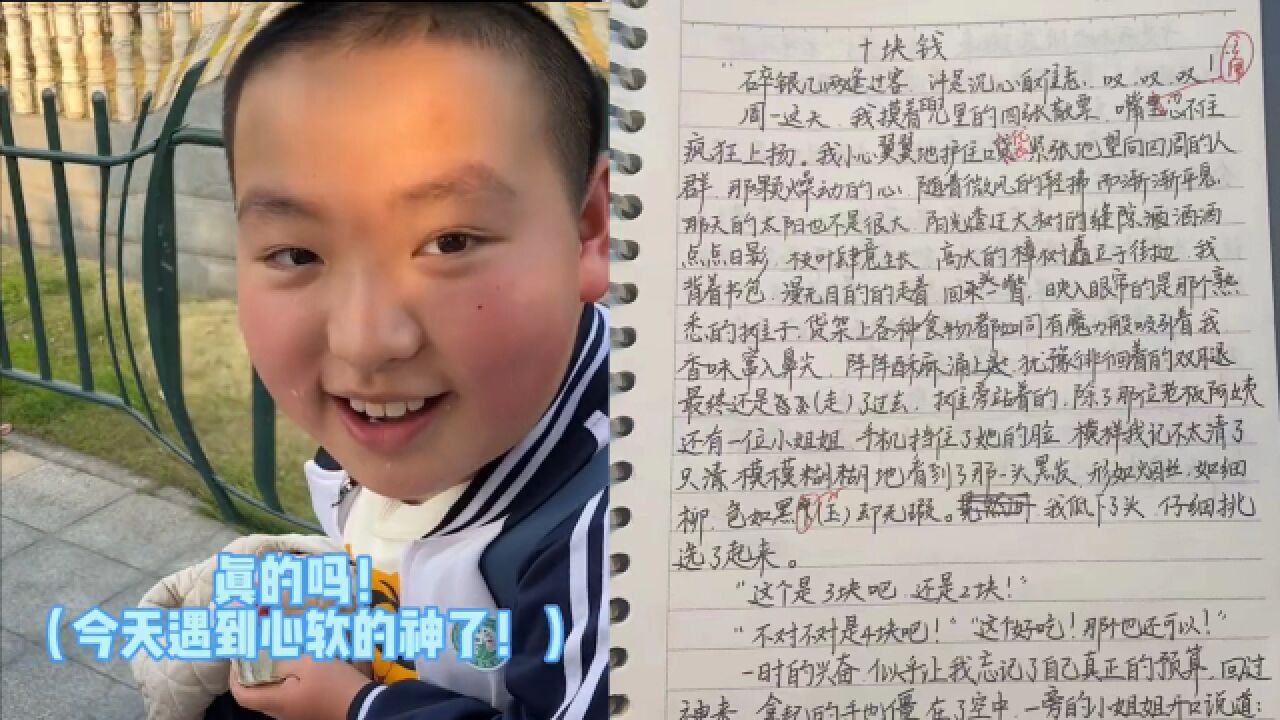 真的吗！
（今天遇到心软的神了！）
十块钱
"碎银几两逢过客，许是沉心自难忘，叹，叹，叹！
周一这天，我摸着兜里的四张散票，嘴 忍不住
疯狂上扬。我小心翼翼地护住口袋 紧张地望向四周的人
群，那颗燥动的心，随着微风的轻拂而渐渐平息，
那天的太阳也不是很大，阳光透过大树的缝隙洒洒洒
点点日影，枝叶肆意生长，高大的樟树矗正于街边，我
背着书包，漫无目的的走着，回来 一瞥，映入眼帘的是那个熟
悉的摊主子，货架上各种食物都如同有魔力般吸引着我，
香味窜入鼻尖，阵阵酥麻涌上 犹豫徘徊着的双腿
最终还是飞飞(走)了过去，摊主旁站着的，除了那位老板阿姨
还有一位小姐姐，手机挡住了她的脸，模样我记不太清了
只清模模糊糊地看到了那一头黑发，形如烟丝，如细
柳，色如黑 (玉)却无瑕。 我低下了头，仔细挑
选了起来。
"这个是3块吧，还是2块！"
"不对不对是4块吧！""这个好吃！那个巴还可以！"
一时的兴奋，似乎让我忘记了自己真正的预算，回过
神来，拿起的手也僵在了空中，一旁的小姐姐开口说道：